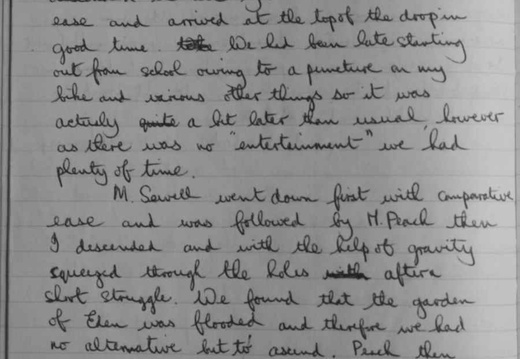 ease and arrived at the top of the drop in
good time. We had been late starting
out from school owing to a puncture on my
bike and various other things so it was
actualy quite a bit later than usual, however
as there was no "entertainment" we had
plenty of time.
M. Sewell went down first with comparative
ease and was followed by M. Peach then
I descended and with the help of gravity
squeezed through the holes with after a
short struggle. We found that the garden
of Eden was flooded and therefore we had
no alternative but to ascend. Peach then